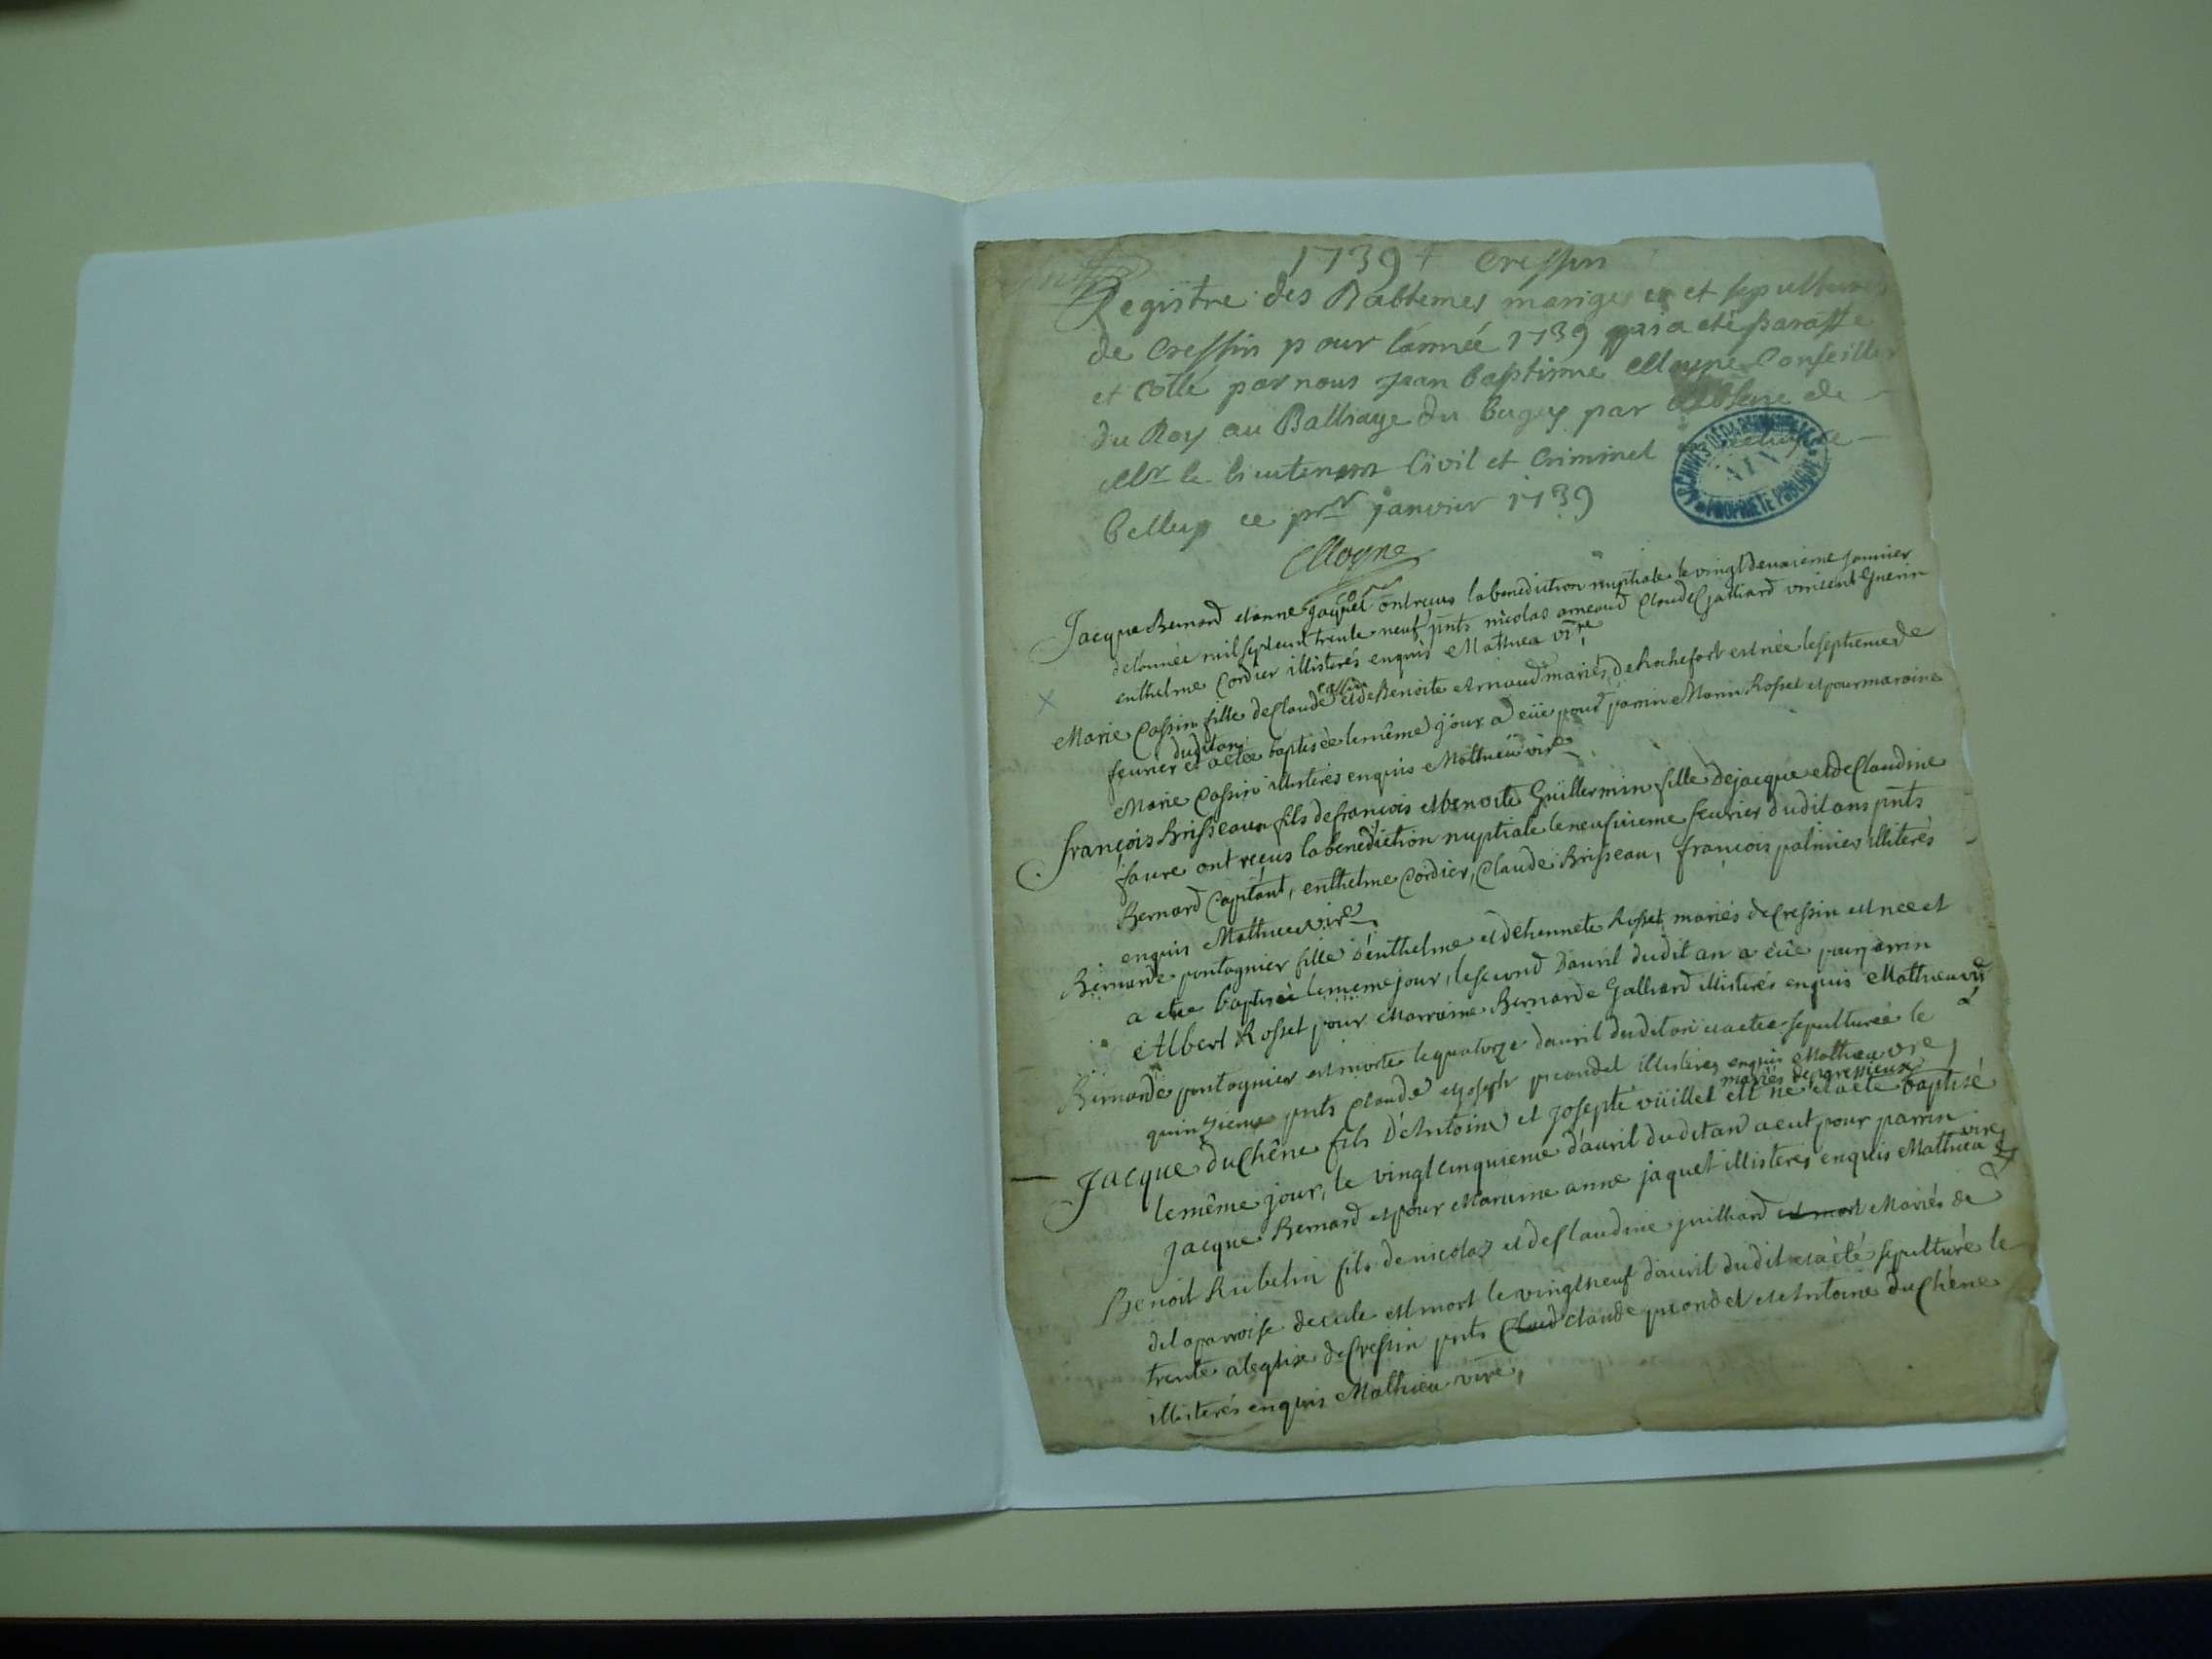 1739 Cressin
Registre des Babtemes mariges et sepultures
de Cressin pour l'année 1739 qui a eté paraffe
et cotté par nous Jean baptisme Moyne Conseiller
du Roy au Balliage du bugey par absence de
Mr le lieutenant Civil et Criminel
belley ce pr janvier 1739
Moyne
ARCHIVES DEPARTEMENTALES
AIN
PROPRIETE PUBLIQUE
Jacque Bernard et anne jaquet ont reçus la benediction nuptiale le vingt deuxieme janvier
de l'année mil sept cent trente neuf pnts nicolas arneaud Claude Galliard vincent Guerin
enthelme Cordier illisterés enquis Mathieu vire
Marie Cassin fille de Claude Cassin et de Benoite Arnaud mariés de Rochefort est née le septieme de
fevrier dudit an et a etée baptisée le même jour a eüe pour parin Marin Rosset et pour maraine
Marie Cassin illisterés enquis Mathieu vire
françois Brisseaux fils de françois et benoite Guillermin fille de jacque et de Claudine
faure ont reçus la benediction nuptiale le neufvieme fevrier dudit ans pnts
Bernard Capitant, enthelme Cordier, Claude Brisseau, françois palinier illiterés
enquis Mathieu vire
Bernarde pontagnier fille d'enthelme et de Rosset mariés de Cressin est nee et
a etee baptisée le meme jour, le second d'avril dudit an a eüe pour parrin
Albert Rosset pour Marraine Bernarde Galliard illisterés enquis Mathieu vire
Bernarde pontagnier est morte le quatorze d'avril dudit an et a etee sepulturée le
quinzieme pnts Claude et joseph picondet illisteres enquis Mathieu vire
mariés de gressieux
Jacque duchêne fils d'Antoine et josepte vüillet est né et a eté baptisé
le même jour, le vingt cinquieme d'avril dudit an a eut pour parrin
jacque Bernard et pour Maraine anne jaquet illisteres enquis Mathieu vire
Benoit Rubelin fils de nicolas et de Claudine juilliard est mort Mariés de
de la parroise de cule est mort le vingt neuf d'avril dudit et a été sepulturé le
trente a leglise de Cressin pnts Claud claude picondet et Antoine duchêne
illisterés enquis Mathieu vire,